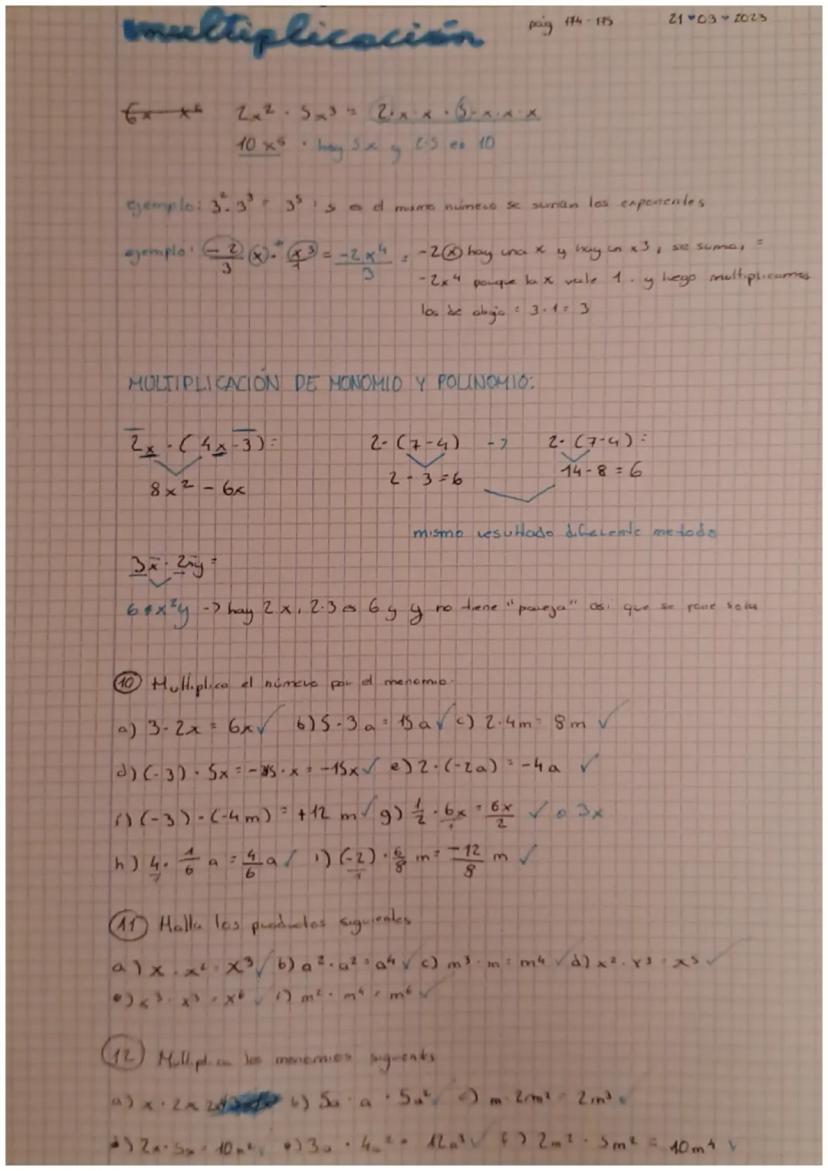 multiplicación pág 174-175 21-03-2023
2x² · 5x³ = 2·x·x · 5·x·x·x
10x⁵ · hay 5x y 2·5 es 10
ejemplo: 3² · 3³ = 3⁵ : si es el mismo número se suman los exponentes
ejemplo: -2/3 (x) · x³/1 = -2x⁴/3 = -2(x) hay una x y hay un x3, se suma, =
-2x⁴ porque la x vale 1. y luego multiplicamos
los de abajo = 3·1 = 3
MULTIPLICACIÓN DE MONOMIO Y POLINOMIO:
2x · (4x-3) = 2·(7-4) -> 2·(7-4) =
8x² - 6x 2·3=6 14-8=6
mismo resultado diferente metodo
3x · 2xy =
6x²y -> hay 2x, 2·3 es 6 y y no tiene "pareja" asi que se pone sola
10 Multiplica el número por el monomio.
a) 3·2x = 6x ✓ b) 5·3a = 15a ✓ c) 2·4m = 8m ✓
d) (-3)·5x = -15·x = -15x ✓ e) 2·(-2a) = -4a ✓
f) (-3)·(-4m) = +12m ✓ g) 1/2 · 6x/1 = 6x/2 ✓ o 3x
h) 4/1 · 1/6 a = 4/6 a ✓ i) (-2)/1 · 6/8 m = -12/8 m ✓
11 Halla los productos siguientes
a) x · x² = x³ ✓ b) a² · a² = a⁴ ✓ c) m³ · m = m⁴ ✓ d) x² · x³ = x⁵ ✓
e) x³ · x³ = x⁶ ✓ f) m² · m⁴ = m⁶ ✓
12 Multiplica los monomios siguients
a) x · 2x b) 5a · a = 5a² ✓ c) m · 2m² = 2m³ ✓
d) 2x · 5x = 10x² ✓ e) 3a · 4a² = 12a³ ✓ f) 2m² · 5m² = 10m⁴ ✓